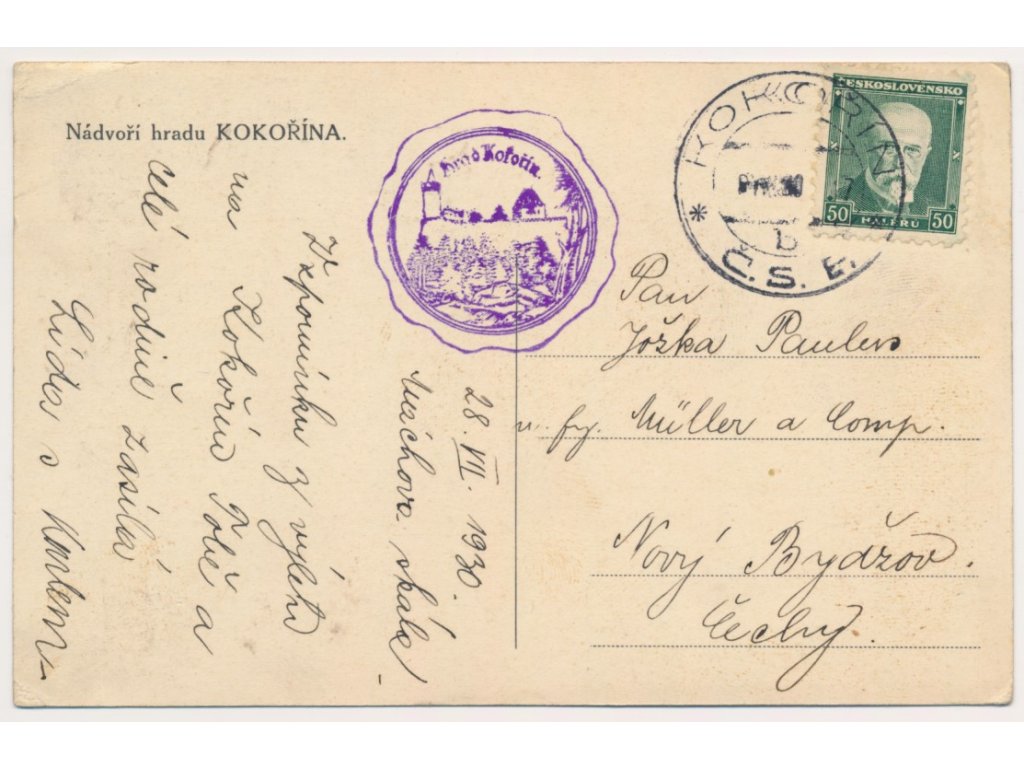 Nádvoří hradu KOKOŘÍNA.
Hrad Kokořín.
KOKOŘÍN
b
* Č.S.
ČESKOSLOVENSKO
50 HALÉŘŮ 50
28. VII. 1930.
Máchova skála
Vzpomínku z výletu
na Kokořín Tobě a
celé rodině zasílá
Lída s
Pan
Jožka
fy. Müller a Comp.
Nový Bydžov.
Čechy.